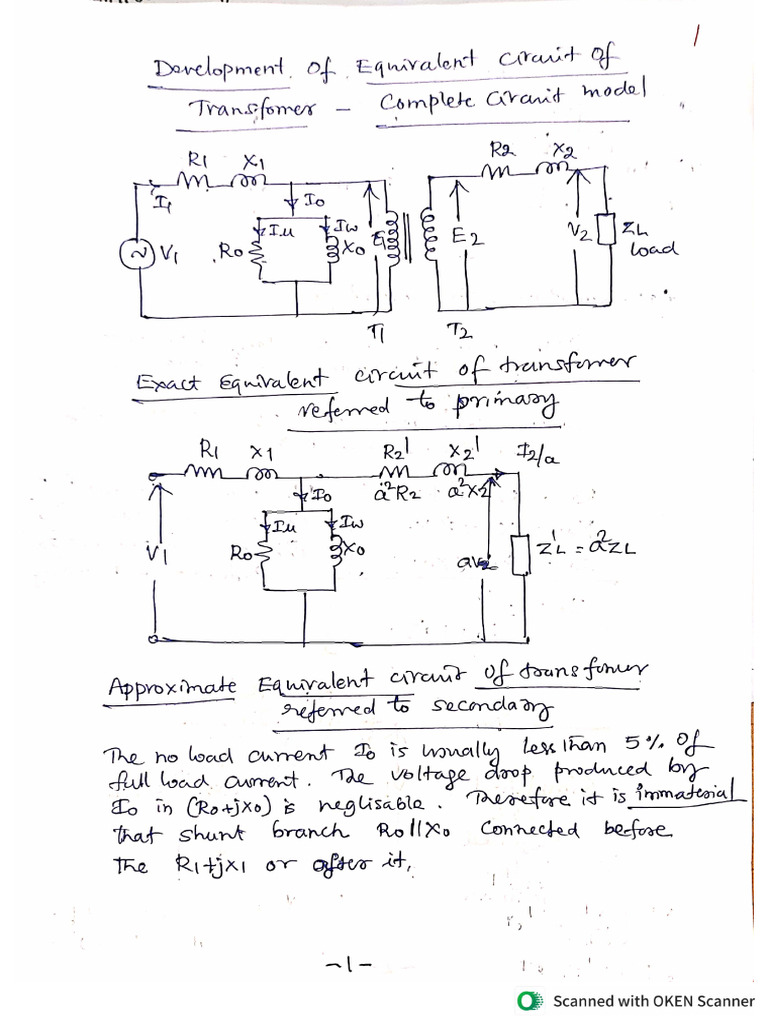 1
Development of Equivalent Circuit Of
Transfomer - Complete Circuit model
R1 X1
R2 X2
I1
I0
Iμ Iw
V1
R0 X0
E1
E2
V2
ZL
Load
T1 T2
Exact Equivalent circuit of transfomer
referred to primary
R1 X1 R2' X2' I2/a
I0 a²R2 a²X2
Iμ Iw
V1 R0 X0 aV2 Z'L = a²ZL
Approximate Equivalent circuit of transfomer
referred to secondary
The no load current I0 is usually less than 5% of
full load current. The voltage drop produced by
I0 in (R0+jX0) is neglisable. Therefore it is immaterial
that shunt branch R0||X0 connected before
the R1+jX1 or after it,
-1-
Scanned with OKEN Scanner